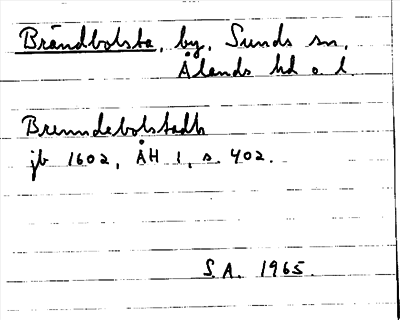 Brändbolsta, by, Sunds sn,
Ålands hd o. l.
Brenndabolstadh
jb 1602, ÅH 1, s. 402.
S.A. 1965.